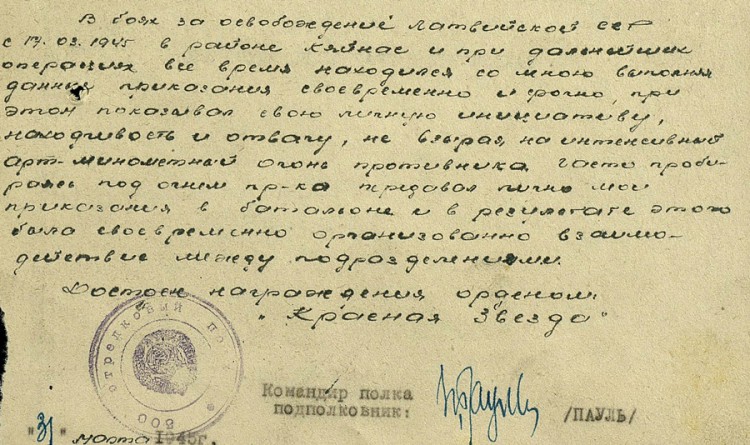 В боях за освобождение Латвийской ССР
с 17.03.1945 в районе Кяйнас и при дальнейших
операциях все время находился со мною выполняя
данные приказания своевременно и срочно, при
этом показывал свою личную инициативу,
находчивость и отвагу, не взырая на интенсивный
арт-минометный огонь противника. Часто проби-
раясь под огнем пр-ка предавал лично мои
приказания в батальоне и в результате этого
была своевременно организованно взаимо-
действие между подрозделениями.
Достоен награждения орденом:
"Красная Звезда"
стрелковый полк
Командир полка
подполковник: /ПАУЛЬ/
"31" марта 1945г.